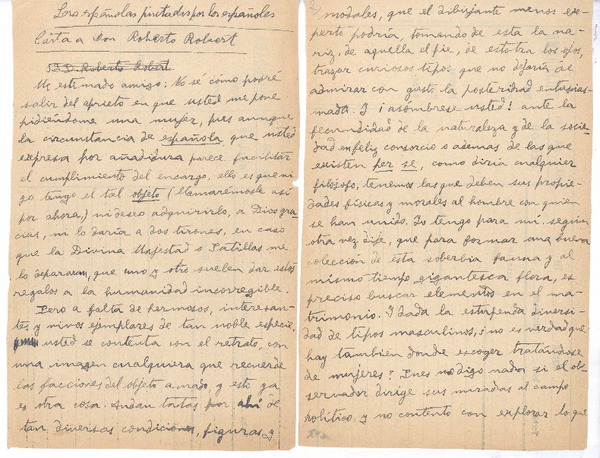 Las españolas pintadas por los españoles
Carta a Don Roberto Robert
Sr. D. Roberto Robert
Mi estimado amigo: No sé cómo podré
salir del aprieto en que usted me pone
pidiéndome una mujer, pues aunque
la circunstancia de española que usted
expresa por añadidura parece facilitar
el cumplimiento del encargo, ello es que ni
yo tengo el tal objeto (llamarémosle así
por ahora,) ni deseo adquirirlo, a Dios gra
cias, ni lo daría a dos tirones, en caso
que la Divina Majestad o Patillas me
lo depararan, que uno y otro suelen dar estos
regalos a la humanidad incorregible.
Pero a falta de hermosos, interesan-
tes y vivos ejemplares de tan noble especie,
usted se contenta con el retrato, con
una imagen cualquiera que recuerde
las facciones del objeto amado, y esto ya
es otra cosa. Andan tantas por ahí de
tan diversas condiciones, figuras y
2/ modales, que el dibujante menos ex-
perto podría, tomando de esta la na-
riz, de aquella el pie, de estotra los ojos,
trazar curiosos tipos que no dejaría de
admirar con gusto la posteridad entusias-
mada. Y ¡asómbrese usted! ante la
fecundidad de la naturaleza y de la socie-
dad en feliz consorcio o ademas de las que
existen per se, como diría cualquier
filósofo, tenemos las que deben sus propie-
dades físicas y morales al hombre con quien
se han unido. Yo tengo para mí, según
otra vez dije, que para formar una buena
colección de esta soberbia fauna y al
mismo tiempo gigantesca flora, es
preciso buscar elementos en el ma-
trimonio. Y dada la estupenda diversi-
dad de tipos masculinos, ¿no es verdad que
hay también donde escoger tratándose
de mujeres? Pues no digo nada si el ob-
servador dirige sus miradas al campo
político, y no contento con explorar lo que